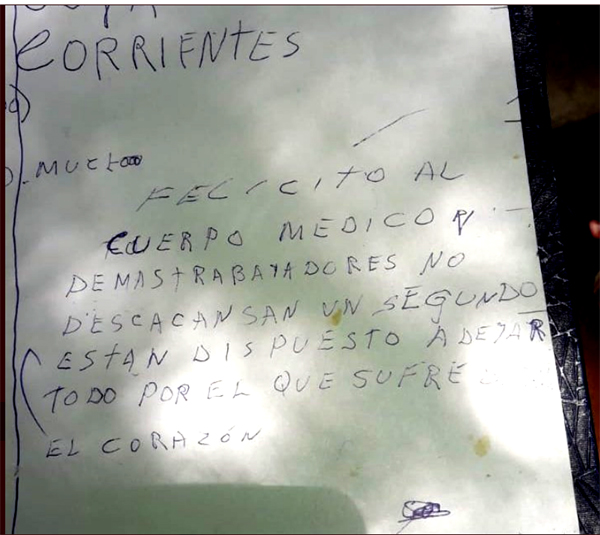 CORRIENTES
FELICITO AL
CUERPO MEDICO Y
DEMAS TRABAYADORES NO
DESCACANSAN UN SEGUNDO
ESTAN DISPUESTO A DEYAR
TODO POR EL QUE SUFRE
EL CORAZÓN